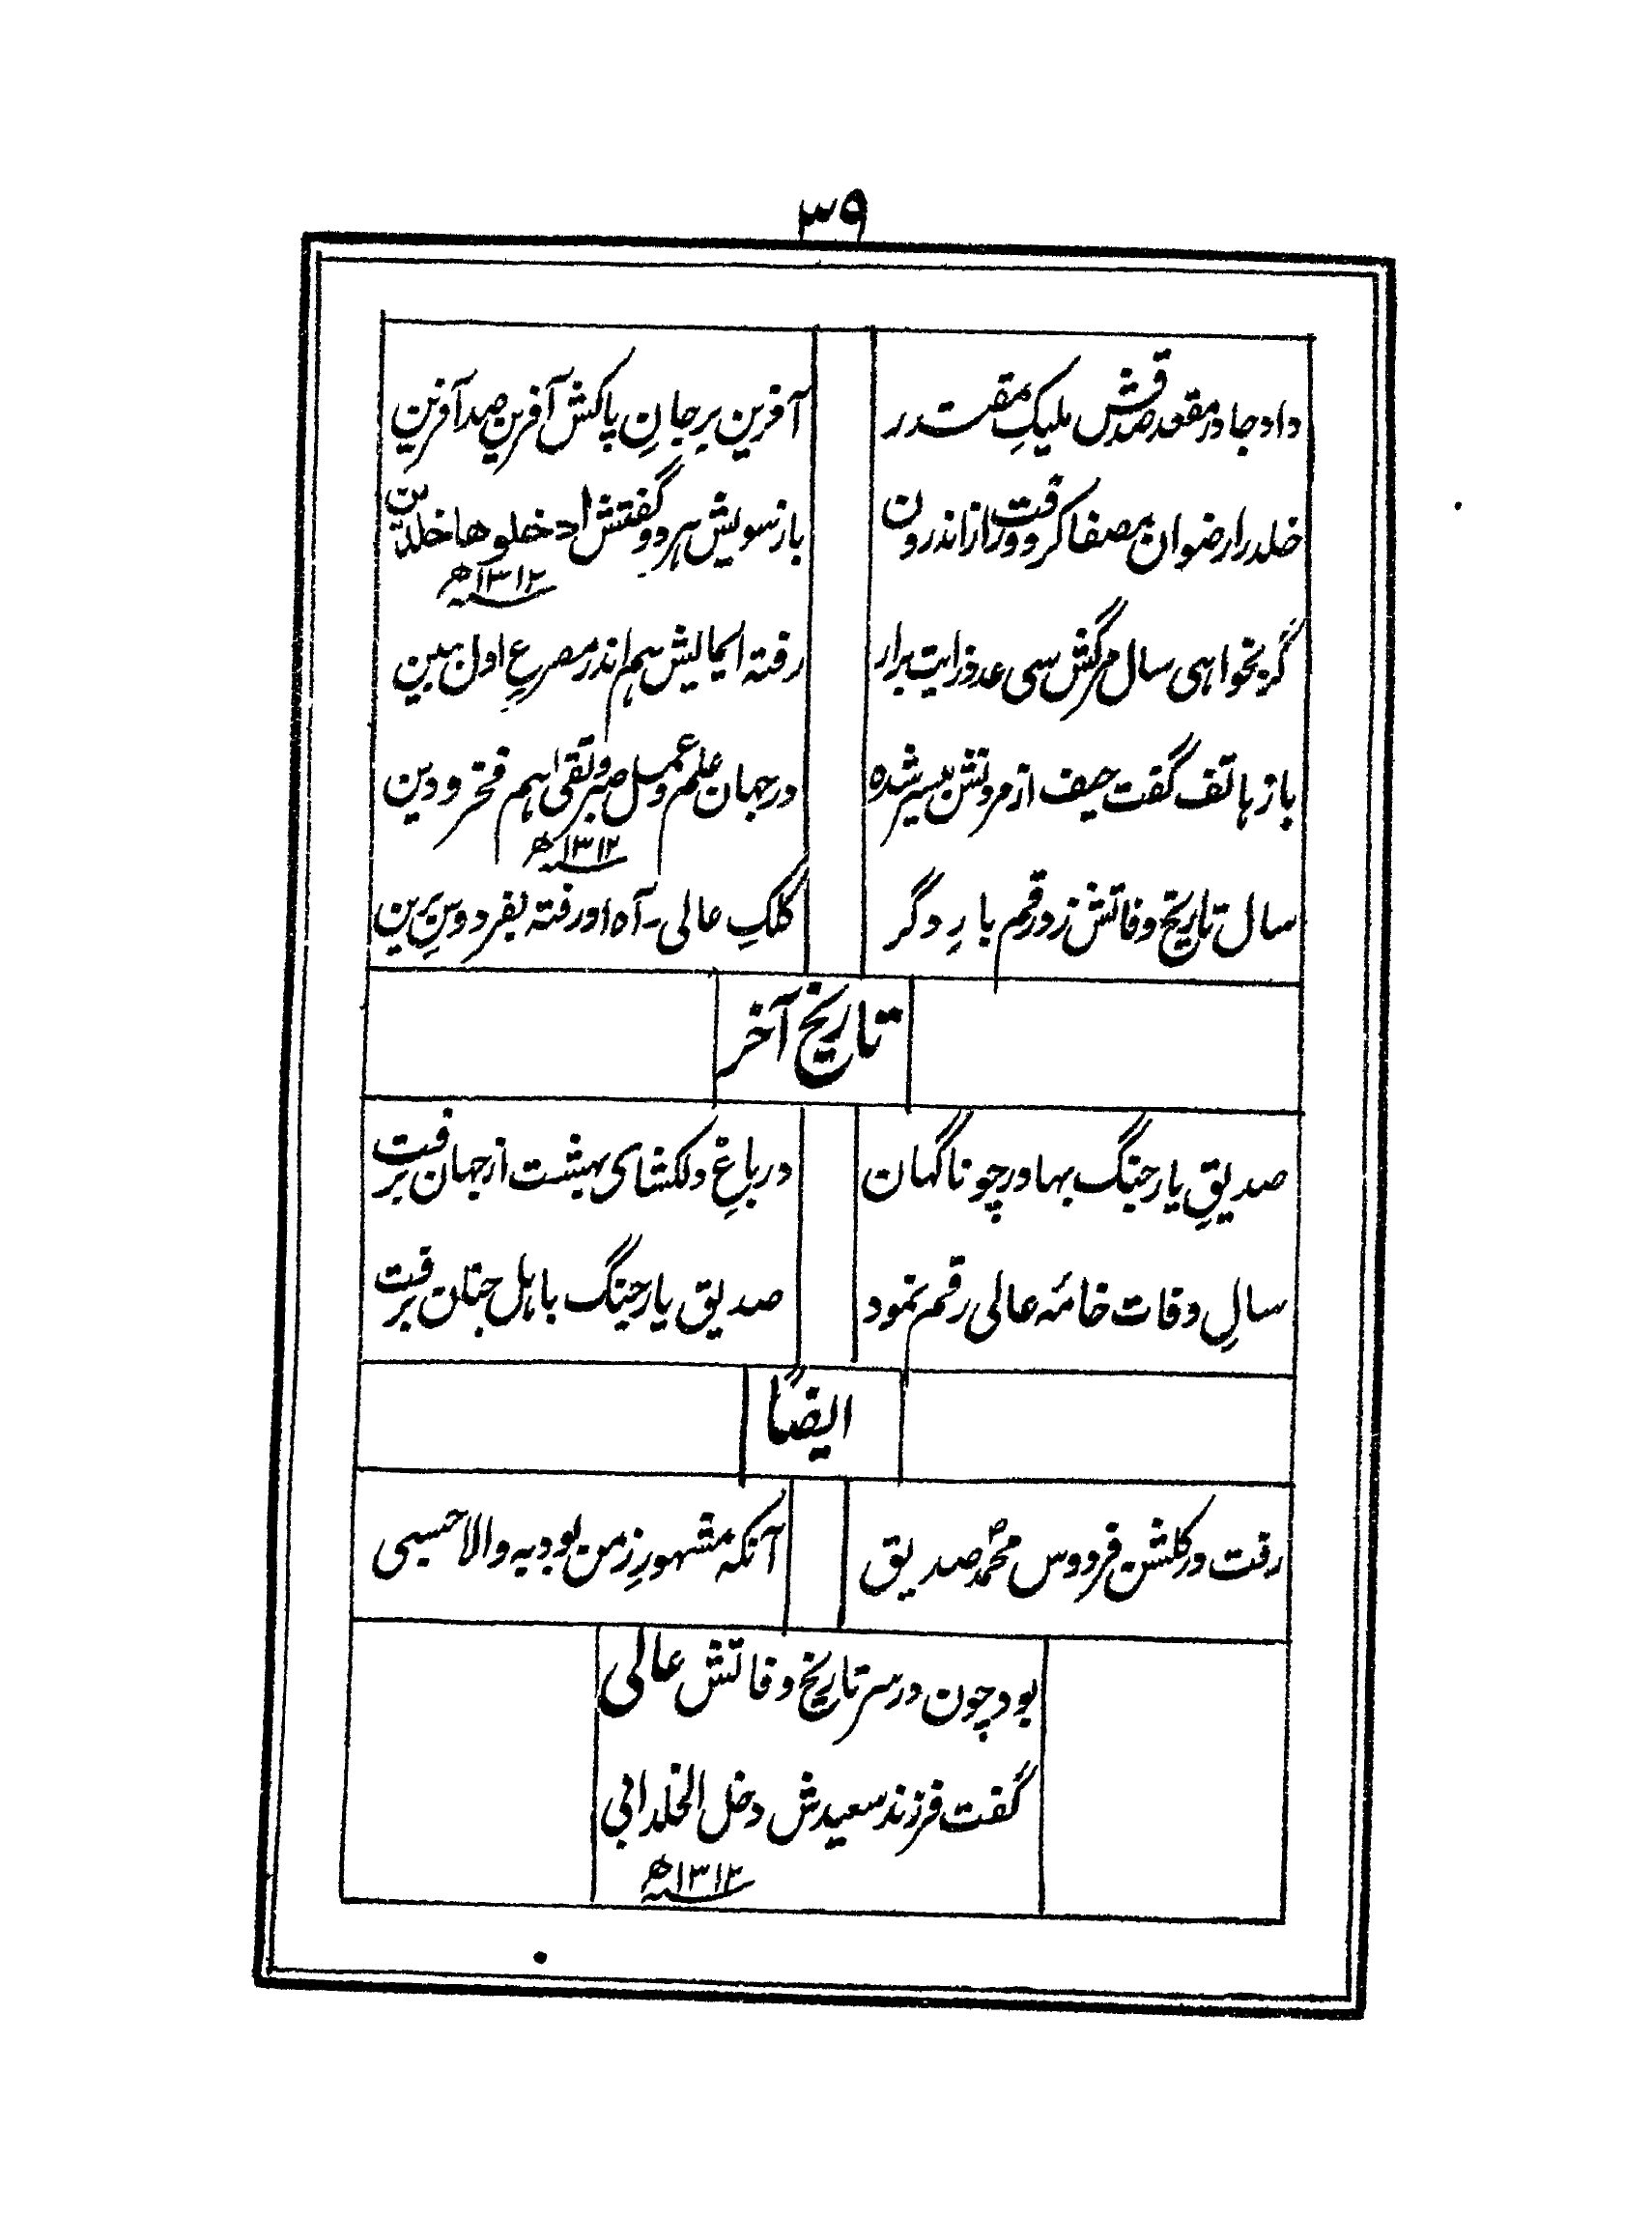 ٣٩
داد جا در مقعد صدقش ملیکِ مقتدر
آفرین بر جانِ پاکش آفرین صد آفرین
خلد را رضوان مصفا کرد و زاز اندرون
باز سویش هر دو گفتش ادخلوها خلدین
١٣١٢ھ
گر بخواهی سال مرگش سی عدد زابیت برار
رفته ایمالیش هم اندر مصرعِ اول ببین
باز هاتف گفت حیف از مردنش بیسر شده
در جهان علم و عمل صبر و تقیٰ هم فخر و دین
١٣١٢ھ
سال تاریخ وفاتش زد رقم بارِ دگر
کلکِ عالی ۔ آه او رفته بفردوسِ برین
تاریخ آخر
صدیقِ یار جنگ بهادر چو ناگهان
در باغِ دلکشای بهشت از جهان برفت
سالِ وفات خامٔه عالی رقم نمود
صدیق یار جنگ باهل جنان برفت
ایضاً
رفت در گلشن فردوس محمد صدیق
آنکه مشهورِ زمن بود به والا حسبی
بود چون در سر تاریخ وفاتش عالی
گفت فرزند سعیدش دخل الخلد ابی
١٣١٢ھ